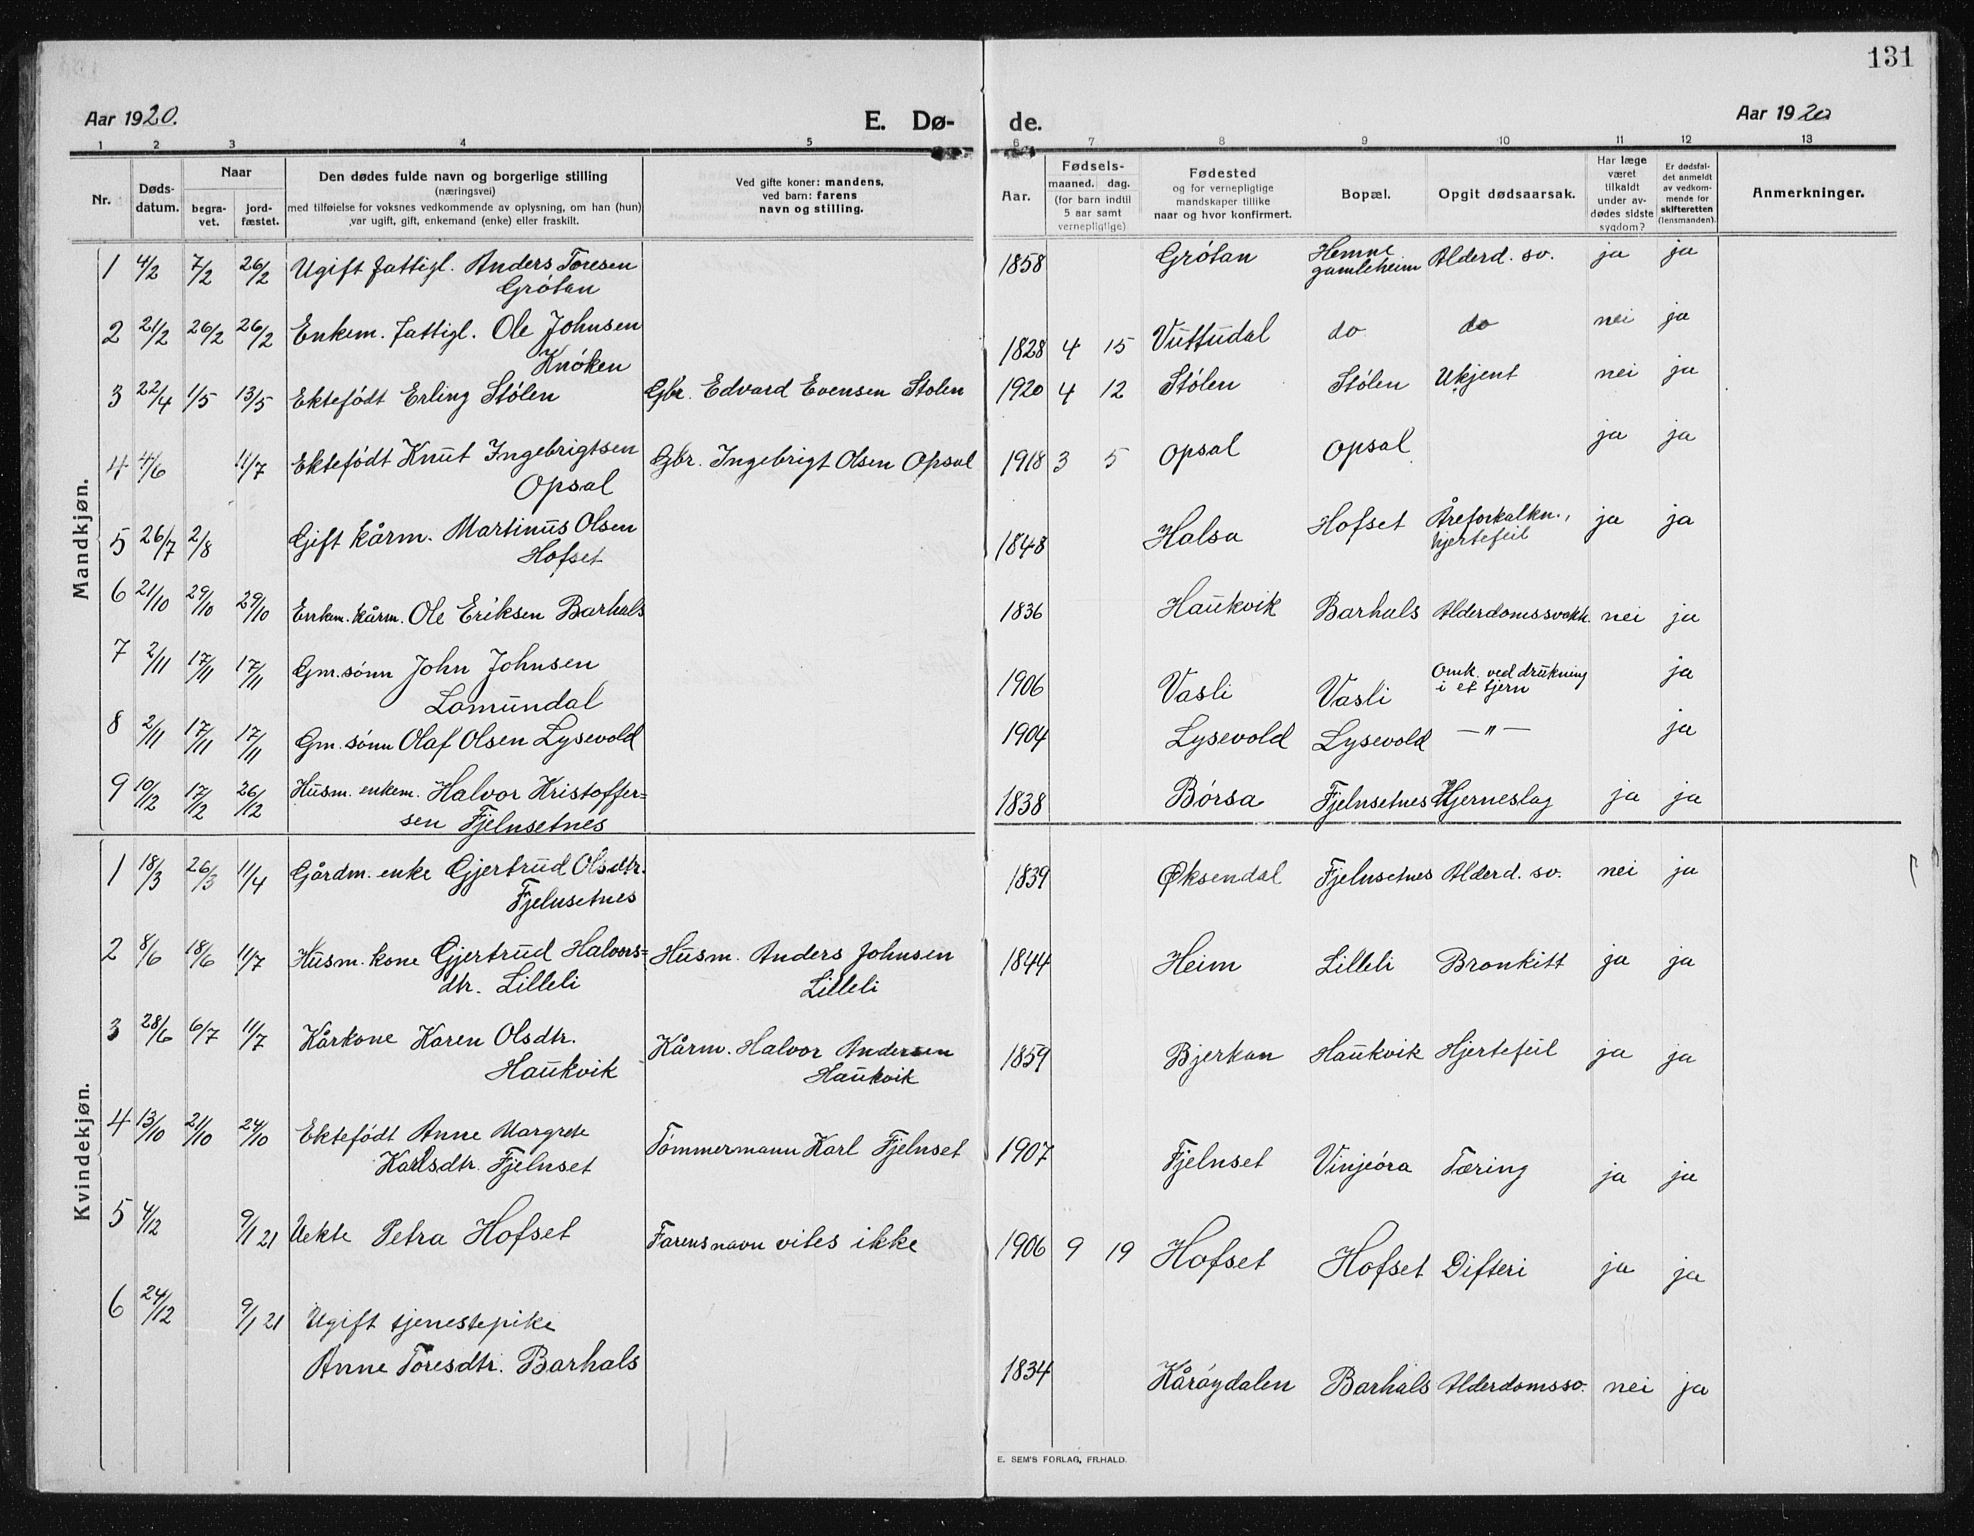 131
Aar 1920. E. Dø- de. Aar 1920
1 2 3 4 5 6 7 8 9 10 11 12 13
Nr. Døds-datum. Naar begra-vet. jord-fæstet. Den dødes fulde navn og borgerlige stilling (næringsvei) med tilføielse for voksnes vedkommende av oplysning, om han (hun) var ugift, gift, enkemand (enke) eller fraskilt. Ved gifte koner: mandens, ved barn: farens navn og stilling. Aar. Fødsels- maaned. dag. (for barn indtil 5 aar samt vernepligtige) Fødested og for vernepligtige mandskaper tillike naar og hvor konfirmert. Bopæl. Opgit dødsaarsak. Har læge været tilkaldt under av-dødes sidste sygdom? Er dødsfal-det anmeldt av vedkom-mende for skifteretten (lensmanden). Anmerkninger.
Mandkjøn.
1 4/2 7/2 26/2 Ugift fattigl. Anders Toresen Grótan 1858 Grótan Hemne gamleheim Alderd. sv. ja ja
2 21/2 26/2 26/2 Enkem. fattigl. Ole Johnsen Knóken 1828 4 15 Vuttudal do do nei ja
3 22/4 1/5 13/5 Ektefödt Erling Stólen Gbr. Edvard Evensen Stolen 1920 4 12 Stólen Stólen Ukjent nei ja
4 4/6 11/7 Ektefödt Knut Ingebrigtsen Opsal Gbr. Ingebrigt Olsen Opsal 1918 3 5 Opsal Opsal ja ja
5 26/7 2/8 Gift kårm. Martinus Olsen Hofset 1848 Halsa Hofset Åreforkalkn., hjertefeil ja ja
6 21/10 29/10 29/10 Enkem. kårm. Ole Eriksen Barhals 1836 Haukvik Barhals Alderdomssvakh. nei ja
7 2/11 17/11 17/11 Gm. sónn John Johnsen Lomundal 1906 Vasli Vasli Omk. ved drukning i et tjern ja
8 2/11 17/11 17/11 Gm. sónn Olaf Olsen Lysevold 1904 Lysevold Lysevold — " — ja
9 10/12 17/12 26/12 Husm. enkem. Halvor Kristoffer=sen Fjelnsetnes 1838 Börsa Fjelnsetnes Hjerneslag ja ja
Kvindekjøn.
1 18/3 26/3 11/4 Gårdm. enke Gjertrud Olsdtr. Fjelnsetnes 1839 Øksendal Fjelnsetnes Alderd. sv. nei ja
2 8/6 18/6 11/7 Husm. kone Gjertrud Halvors=dtr. Lilleli Husm. Anders Johnsen Lilleli 1844 Heim Lilleli Bronkitt ja ja
3 28/6 6/7 11/7 Kårkone Karen Olsdtr. Haukvik Kårm. Halvor Andersen Haukvik 1859 Bjerkan Haukvik Hjertefeil ja ja
4 13/10 21/10 24/10 Ektefödt Anne Margrete Karlsdtr. Fjelnset Tómmermann Karl Fjelnset 1907 Fjelnset Vinjeóra Tæring ja ja
5 4/12 9/1 21 Uekte Petra Hofset Farens navn vites ikke 1906 9 19 Hofset Hofset Difteri ja ja
6 24/12 9/1 21 Ugift tjenestepike Anne Toresdtr. Barhals 1834 Kåróydalen Barhals Alderdomssv. nei ja
E. SEM'S FORLAG, FR.HALD.